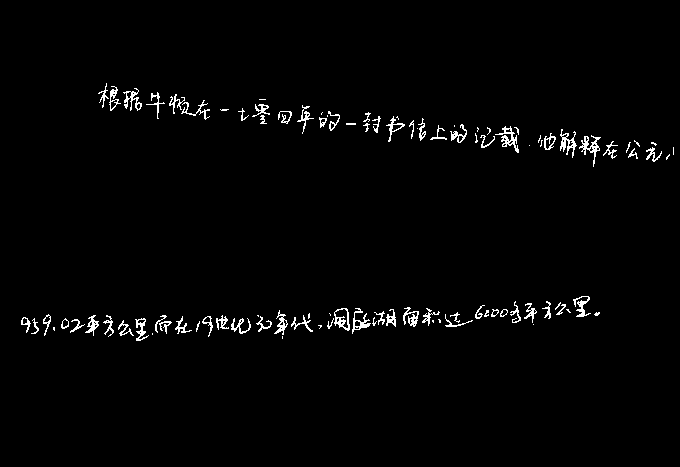 根据牛顿在一七零四年的一封书信上的记载,他解释在公元
959.02平方公里,而在19世纪30年代,洞庭湖面积达6000多平方公里。